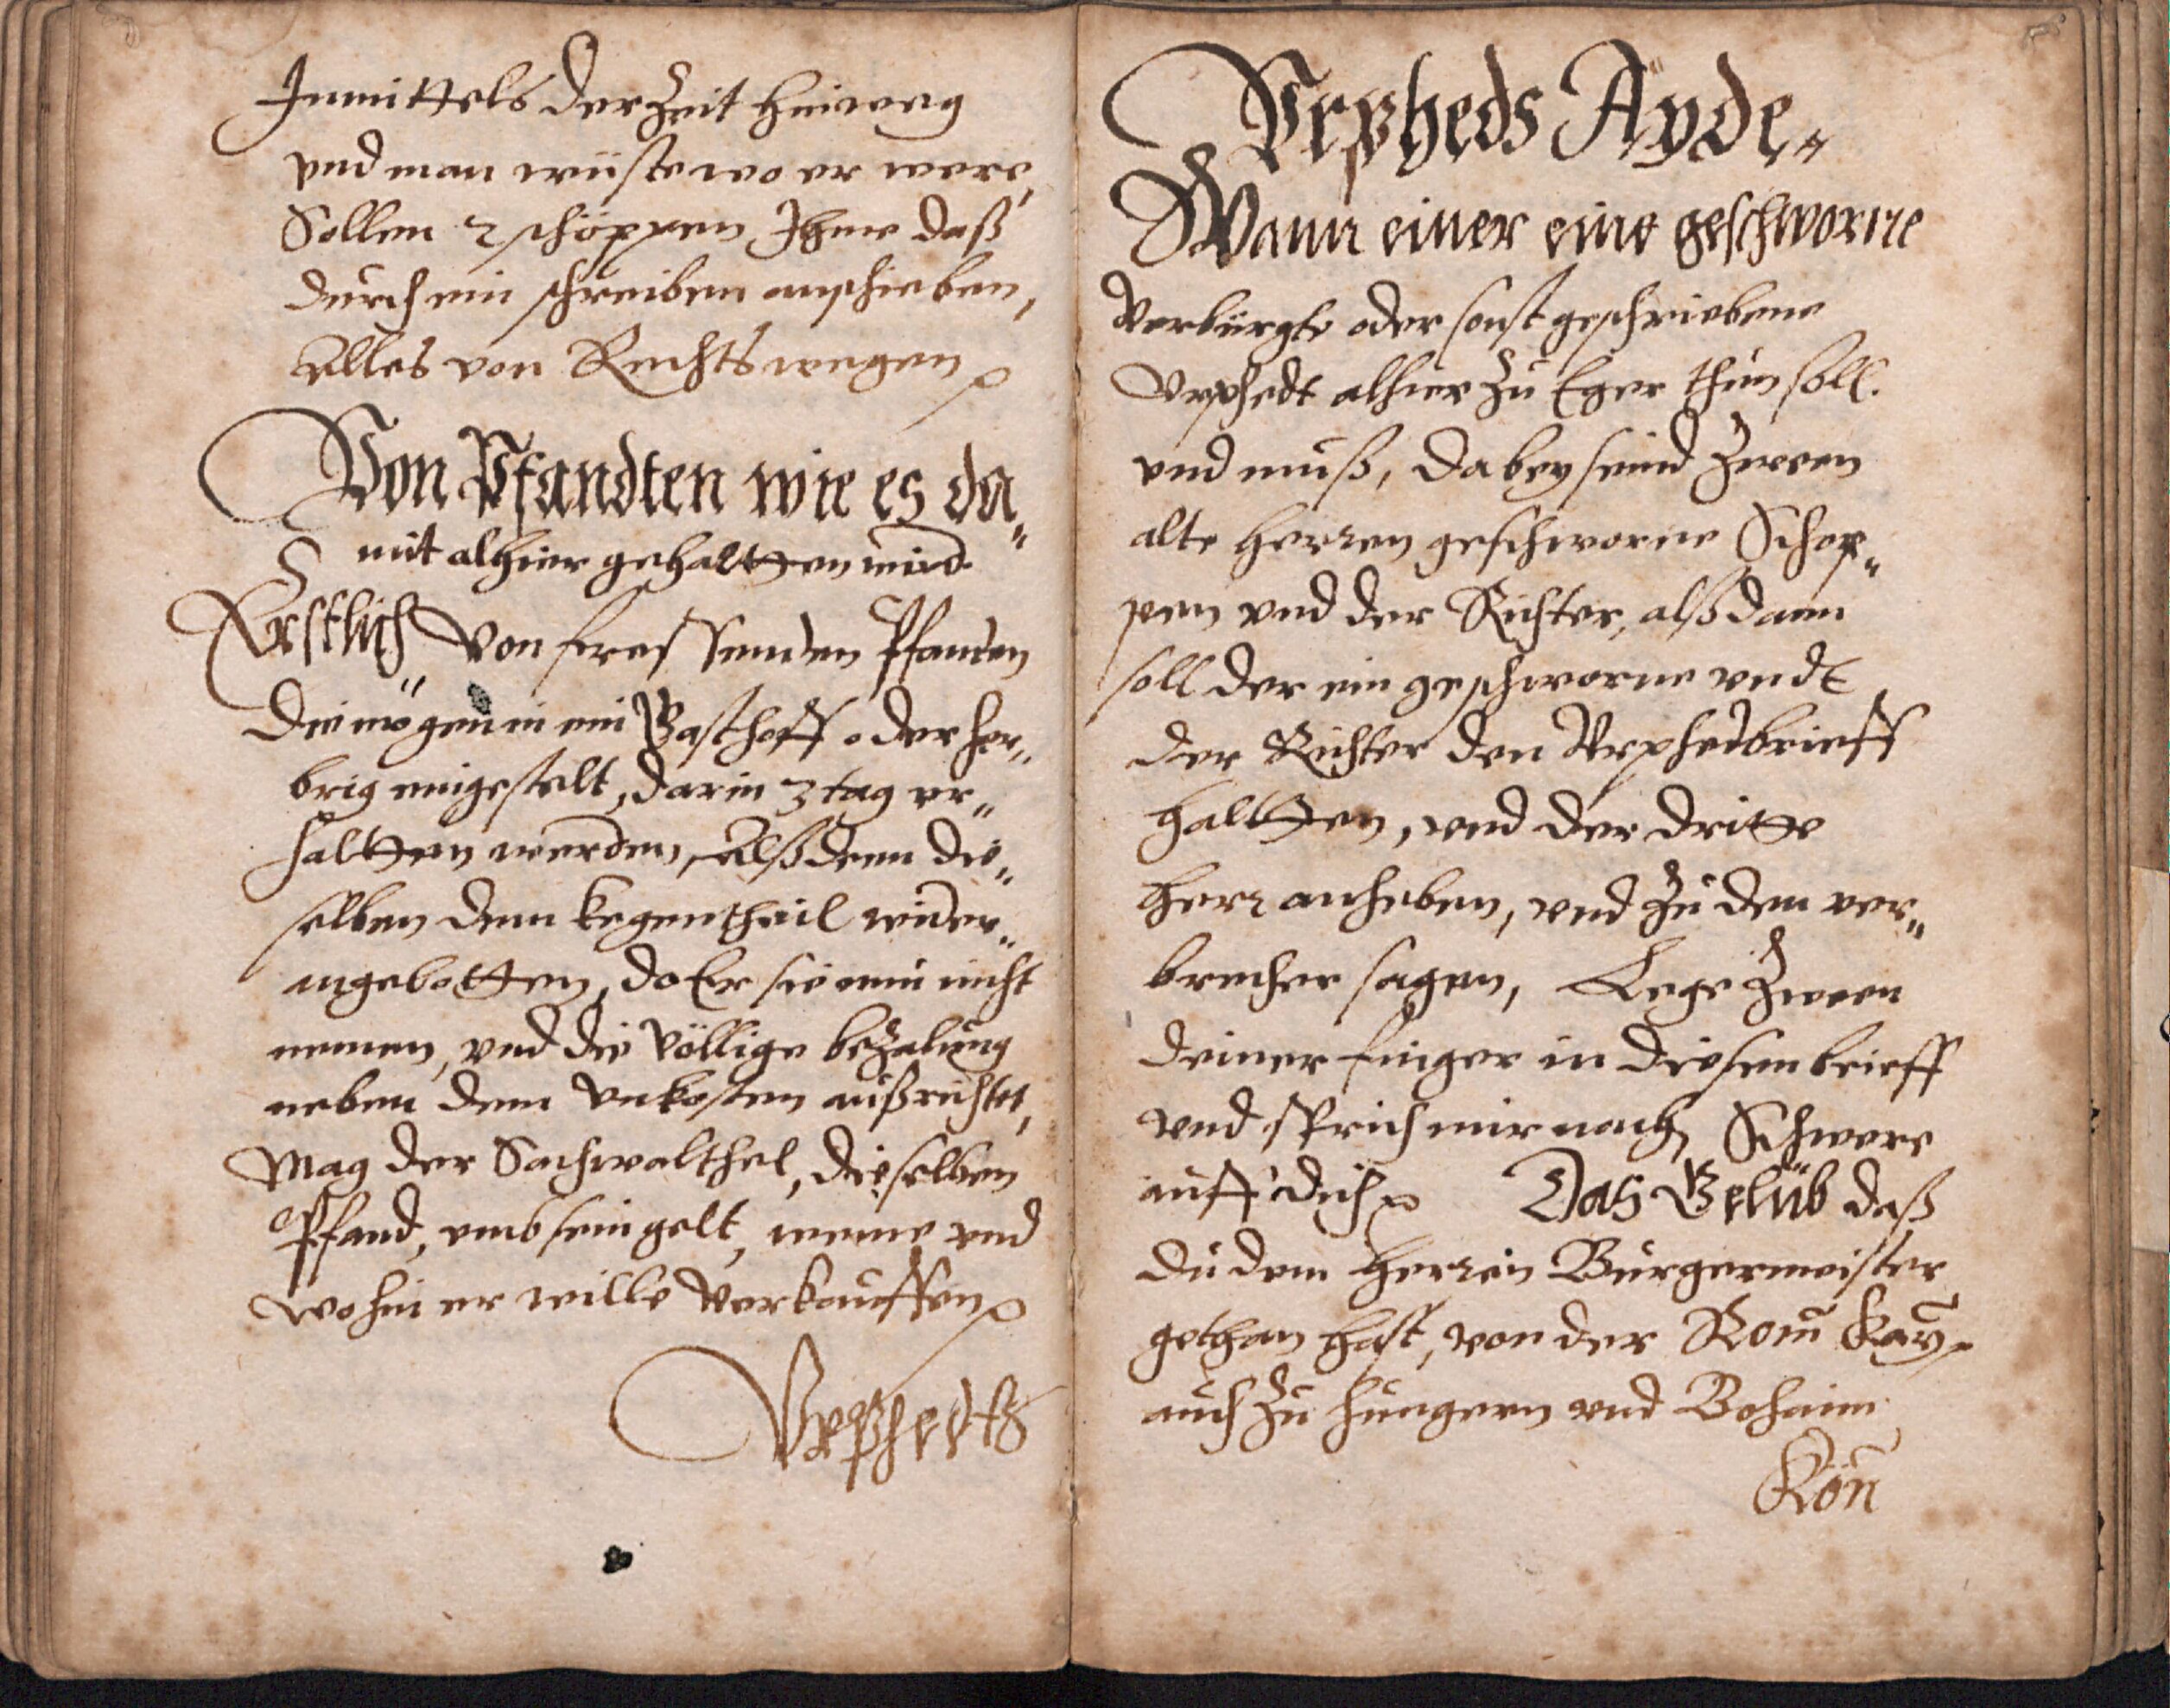 Inmittels der Zeit hinweg
vnd man wüste wo er were,
Sollen 2 schöppen Ihme daß
durch ein schreiben anschieben,
Alles von Rechts wegen
Von Pfandten wie es da„
mit alhier gehaltten wird
Erstlich Von fressenden Pfanden
die mögen in ein Gasthoff oder her„
brig eingestelt, darin 3 tag er„
haltten werden, Alßdenn die„
selben dem kegentheil wider„
angebotten, do Er sie nun nicht
nemen, vnd die völlige bezalung
neben dem vnkosten außrichtet,
Mag der Sachwalthel, dieselben
Pfand, vmb sein gelt, weme vnd
wohin er wille verkauffen
Vrphedts
Vrpheds Ayde„
Wann einer eine geschworne
Verbürgte oder sonst geschriebene
Vrphedt alhier zu Eger thun soll.
vnd muß, dabey seind zween
alte herren geschworne Schop„
pen vnd der Richter, alßdann
soll der ein geschworne vndt
der Richter den Vrphedbrieff
haltten, vnd der dritte
herr anheben, vnd zu dem ver„
brecher sagen, Lege zween
deiner finger in diesen brieff
vnd sprich mir nach, Schwere
auff dich Das Gelüb daß
du dem herren Burgermeister
gethan hast, von der Rom Kay.
auch zu Hungern vnd Bohaim
Kön